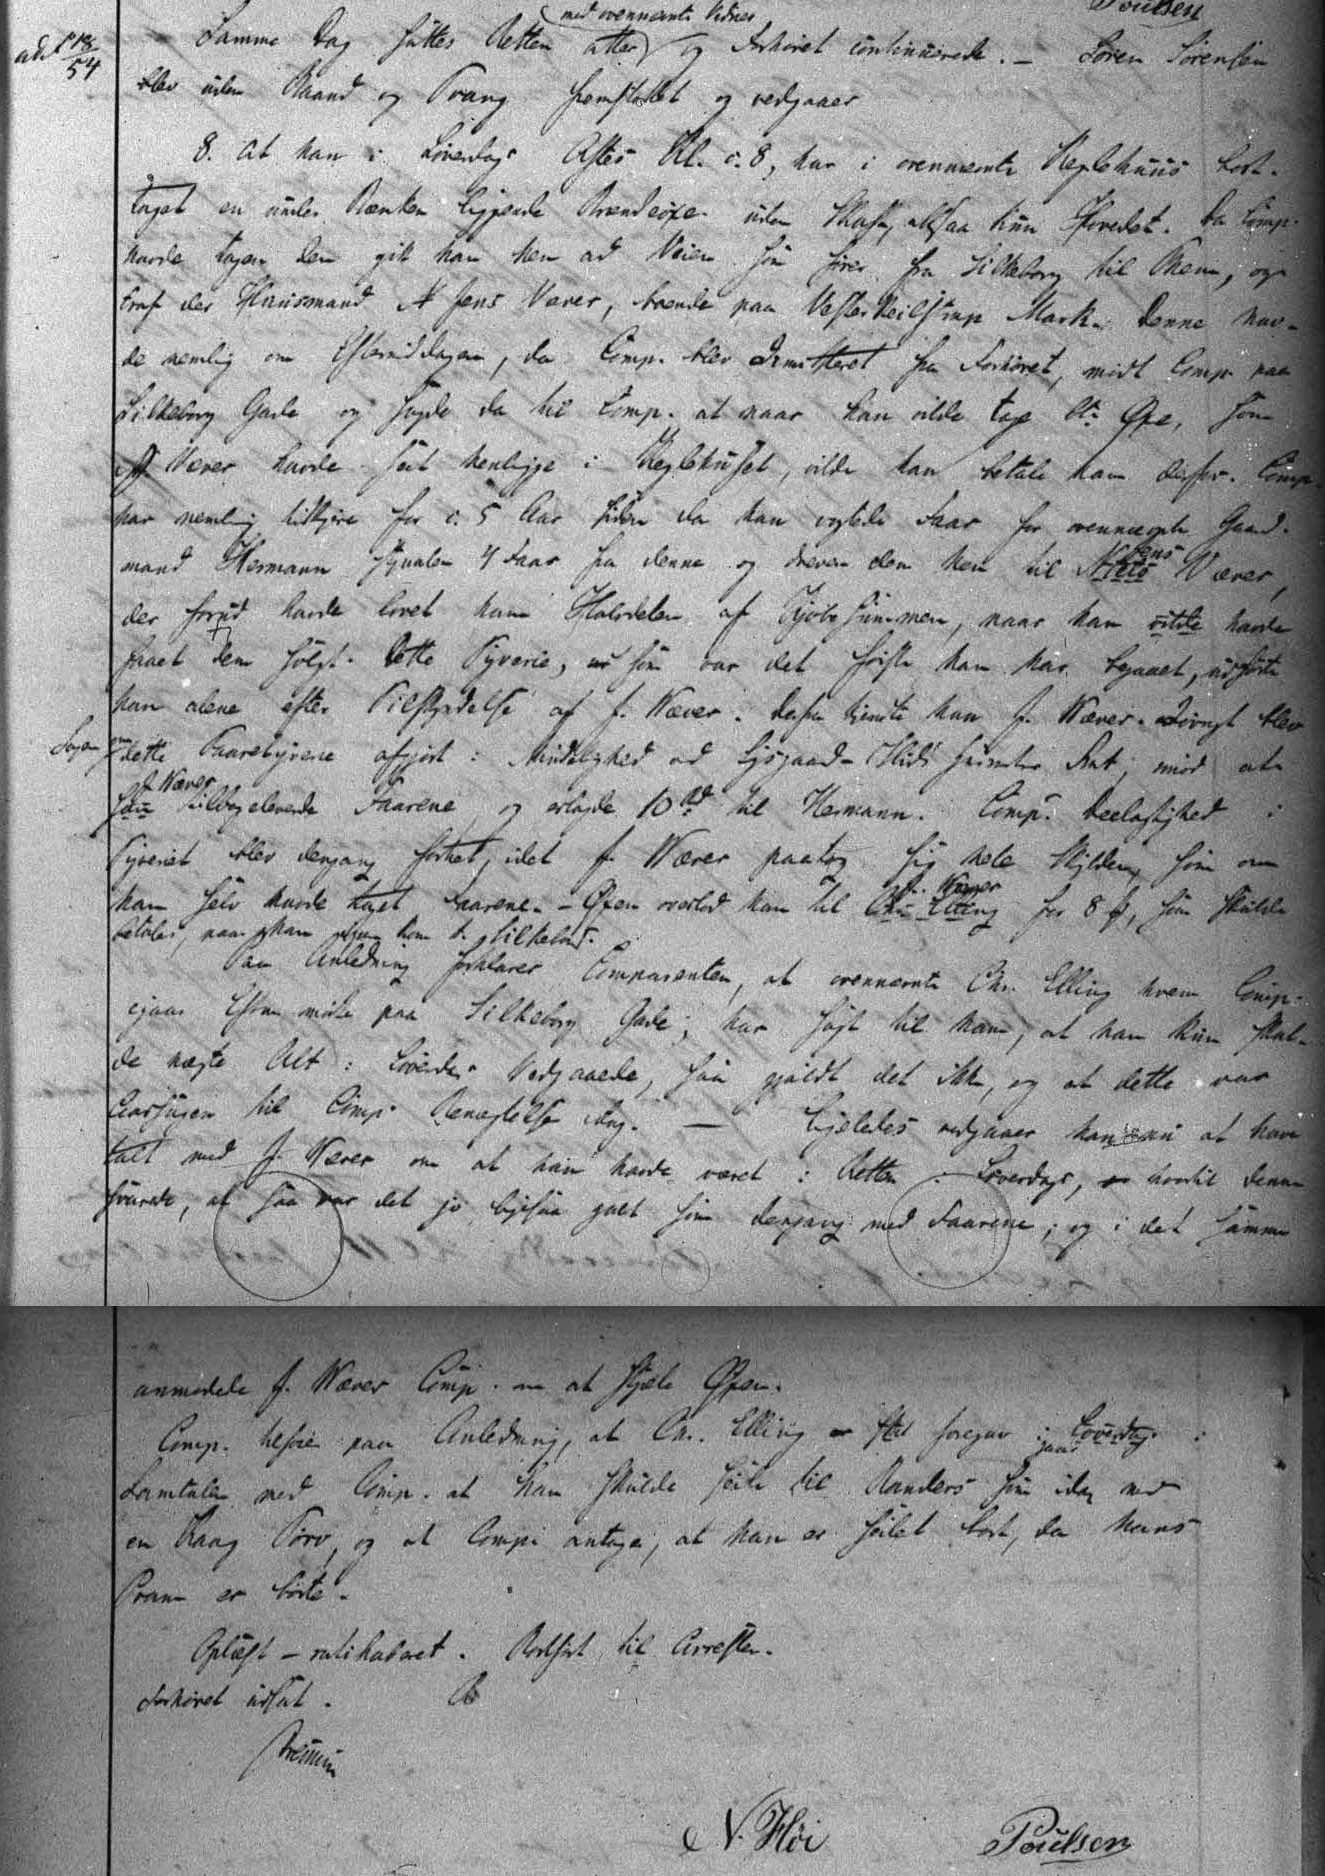 Poulsen
med ovennævnte Vidner
ad P 18/54
Samme Dag sattes Retten atter og Forhøret continuerede. – Søren Sørensen
blev uden Baand og Tvang fremstillet og vedgaaer
8. at han i Løverdags Aftes Kl. c. 8, har i ovennævnte Keglehuus bort-
taget en under Bænken liggende Brændeøxe uden Skaft, altsaa kun Hovedet. Da Comp.
havde tagen den gik han hen ad Veien som fører fra Silkeborg til Them, og
traf der Huusmand Jens Væver, boende paa Vester Keilstrup Mark. Denne hav-
de nemlig om Eftermiddagen, da Comp. blev dimitteret fra Forhøret, mødt Comp. paa
Silkeborg Gade og sagde da til Comp. at naar han vilde tage Øxe, som
J. Væver havde seet henligge i Keglehuset, vilde han betale ham derfor. Comp.
har nemlig tidligere for c. 5 Aar siden da han vogtede Faar for ovennævnte Gaard-
mand Hermann stjaalen 4 Faar fra denne og dreven dem hen til Jens Væver,
der forud havde lovet ham Halvdelen af Kjøbesummen, naar han vilde havde
faaet dem solgt. Dette Tyverie, som var det første han har begaaet, udførte
han alene efter Tilskyndelse af J. Væver. Derfra kjendte han J. Væver. Iøvrigt blev
Sagen om dette Faaretyverie afgjort i Mindelighed ved Lysgaard-Hids Herreders Ret, mod at
J. Væver
han tilbageleverede Faarene og erlagde 10 rd til Hermann. Comp. Deelagtighed i
Tyveriet blev dengang fortiet, idet J. Væver paatog sig hele Skylden, som om
han selv havde taget Faarene. – Øxen overlod han til J. Væver Chr. Elling for 8 ß, som skulde
betales, naar han igjen kom t. Silkeborg.
Paa Anledning forklarer Comparenten, at ovennævnte Chr. Elling hvem Comp.
igaar Efterm. mødte paa Silkeborg Gade, har sagt til ham, at han kun skul-
de nægte Alt i Løverdags Vedgaaede, saa gjældt det ikke, og at dette var
Aarsagen til Comp. Benægtelse idag. — Ligeledes vedgaaer han nu at have
talt med J. Væver om at han havde været i Retten i Løverdags, hvortil denne
svarede, at saa var det jo ligesaa galt som dengang med Faarene; og i det samme
anmodede J. Væver Comp. om at stjæle Øxen.
Comp. tilføier paa Anledning, at Chr. Elling skal foregav i Løverdags igaar i
Samtalen med Comp. at han skulde seile til Randers som idag med
en Kaag Tørv, og at Comp. antager, at han er seilet bort, da hans
Pram er borte.
Oplæst – ratihaberet. Bortført til Arresten.
Forhøret udsat.
N. Høi
Poulsen